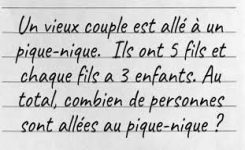 Un vieux couple est allé à un
pique-nique. Ils ont 5 fils et
chaque fils a 3 enfants. Au
total, combien de personnes
sont allées au pique-nique ?